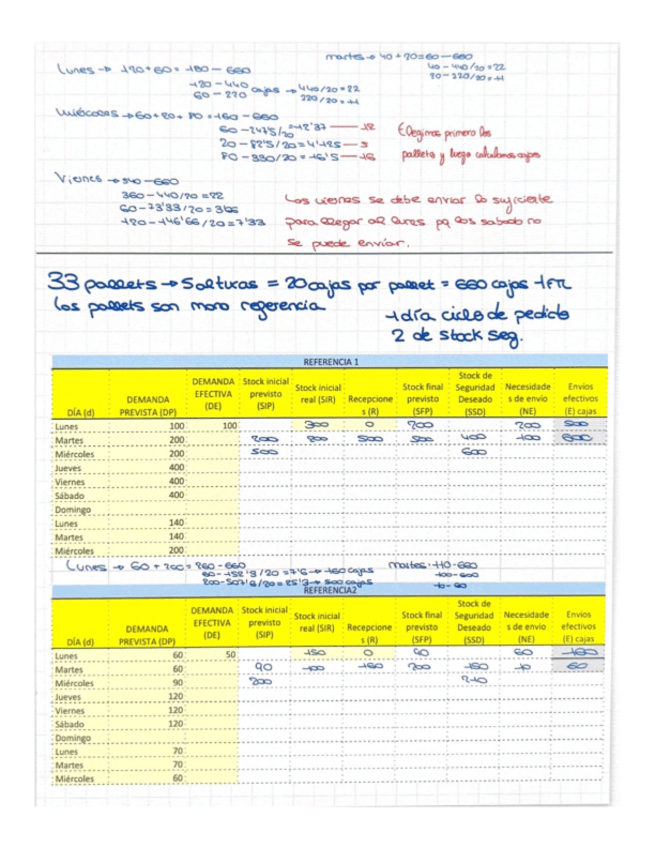 martes → 40 + 20 = 60 - 660
Lunes → 120 + 60 = 180 - 660
40 - 440/20 = 22
20 - 220/20 = 11
120 - 440 cajas → 440/20 = 22
60 - 220 220/20 = 11
Miércoles → 60 + 20 + 80 = 160 - 660
60 - 247'5/20 = 12'37 — 12
20 - 82'5/20 = 4'125 — 5
80 - 330/20 = 16'5 — 16
Elegimos primero los
pallets y luego calculamos cajas
Viernes → 540 - 660
360 - 440/20 = 22
60 - 73'33/20 = 3'66
120 - 146'66/20 = 7'33
Los viernes se debe enviar lo suficiente
para llegar al lunes pq los sabado no
se puede enviar.
33 pallets → 5 alturas = 20 cajas por pallet = 660 cajas 1 FTL
los pallets son mono referencia
1 día ciclo de pedido
2 de stock seg.
REFERENCIA 1
DÍA (d) DEMANDA PREVISTA (DP) DEMANDA EFECTIVA (DE) Stock inicial previsto (SIP) Stock inicial real (SIR) Recepciones (R) Stock final previsto (SFP) Stock de Seguridad Deseado (SSD) Necesidades de envio (NE) Envios efectivos (E) cajas
Lunes 100 100 300 0 200 200 500
Martes 200 200 200 500 500 400 100 600
Miércoles 200 500 600
Jueves 400
Viernes 400
Sábado 400
Domingo
Lunes 140
Martes 140
Miércoles 200
Lunes → 60 + 200 = 260 - 660
60 - 152'3/20 = 7'6 → 160 cajas
200 - 507'6/20 = 25'3 → 500 cajas
martes: 110 - 660
100 - 600
REFERENCIA2
DÍA (d) DEMANDA PREVISTA (DP) DEMANDA EFECTIVA (DE) Stock inicial previsto (SIP) Stock inicial real (SIR) Recepciones (R) Stock final previsto (SFP) Stock de Seguridad Deseado (SSD) Necesidades de envio (NE) Envios efectivos (E) cajas
Lunes 60 50 150 0 90 60 160
Martes 60 90 100 160 200 150 10 60
Miércoles 90 200 210
Jueves 120
Viernes 120
Sábado 120
Domingo
Lunes 70
Martes 70
Miércoles 60